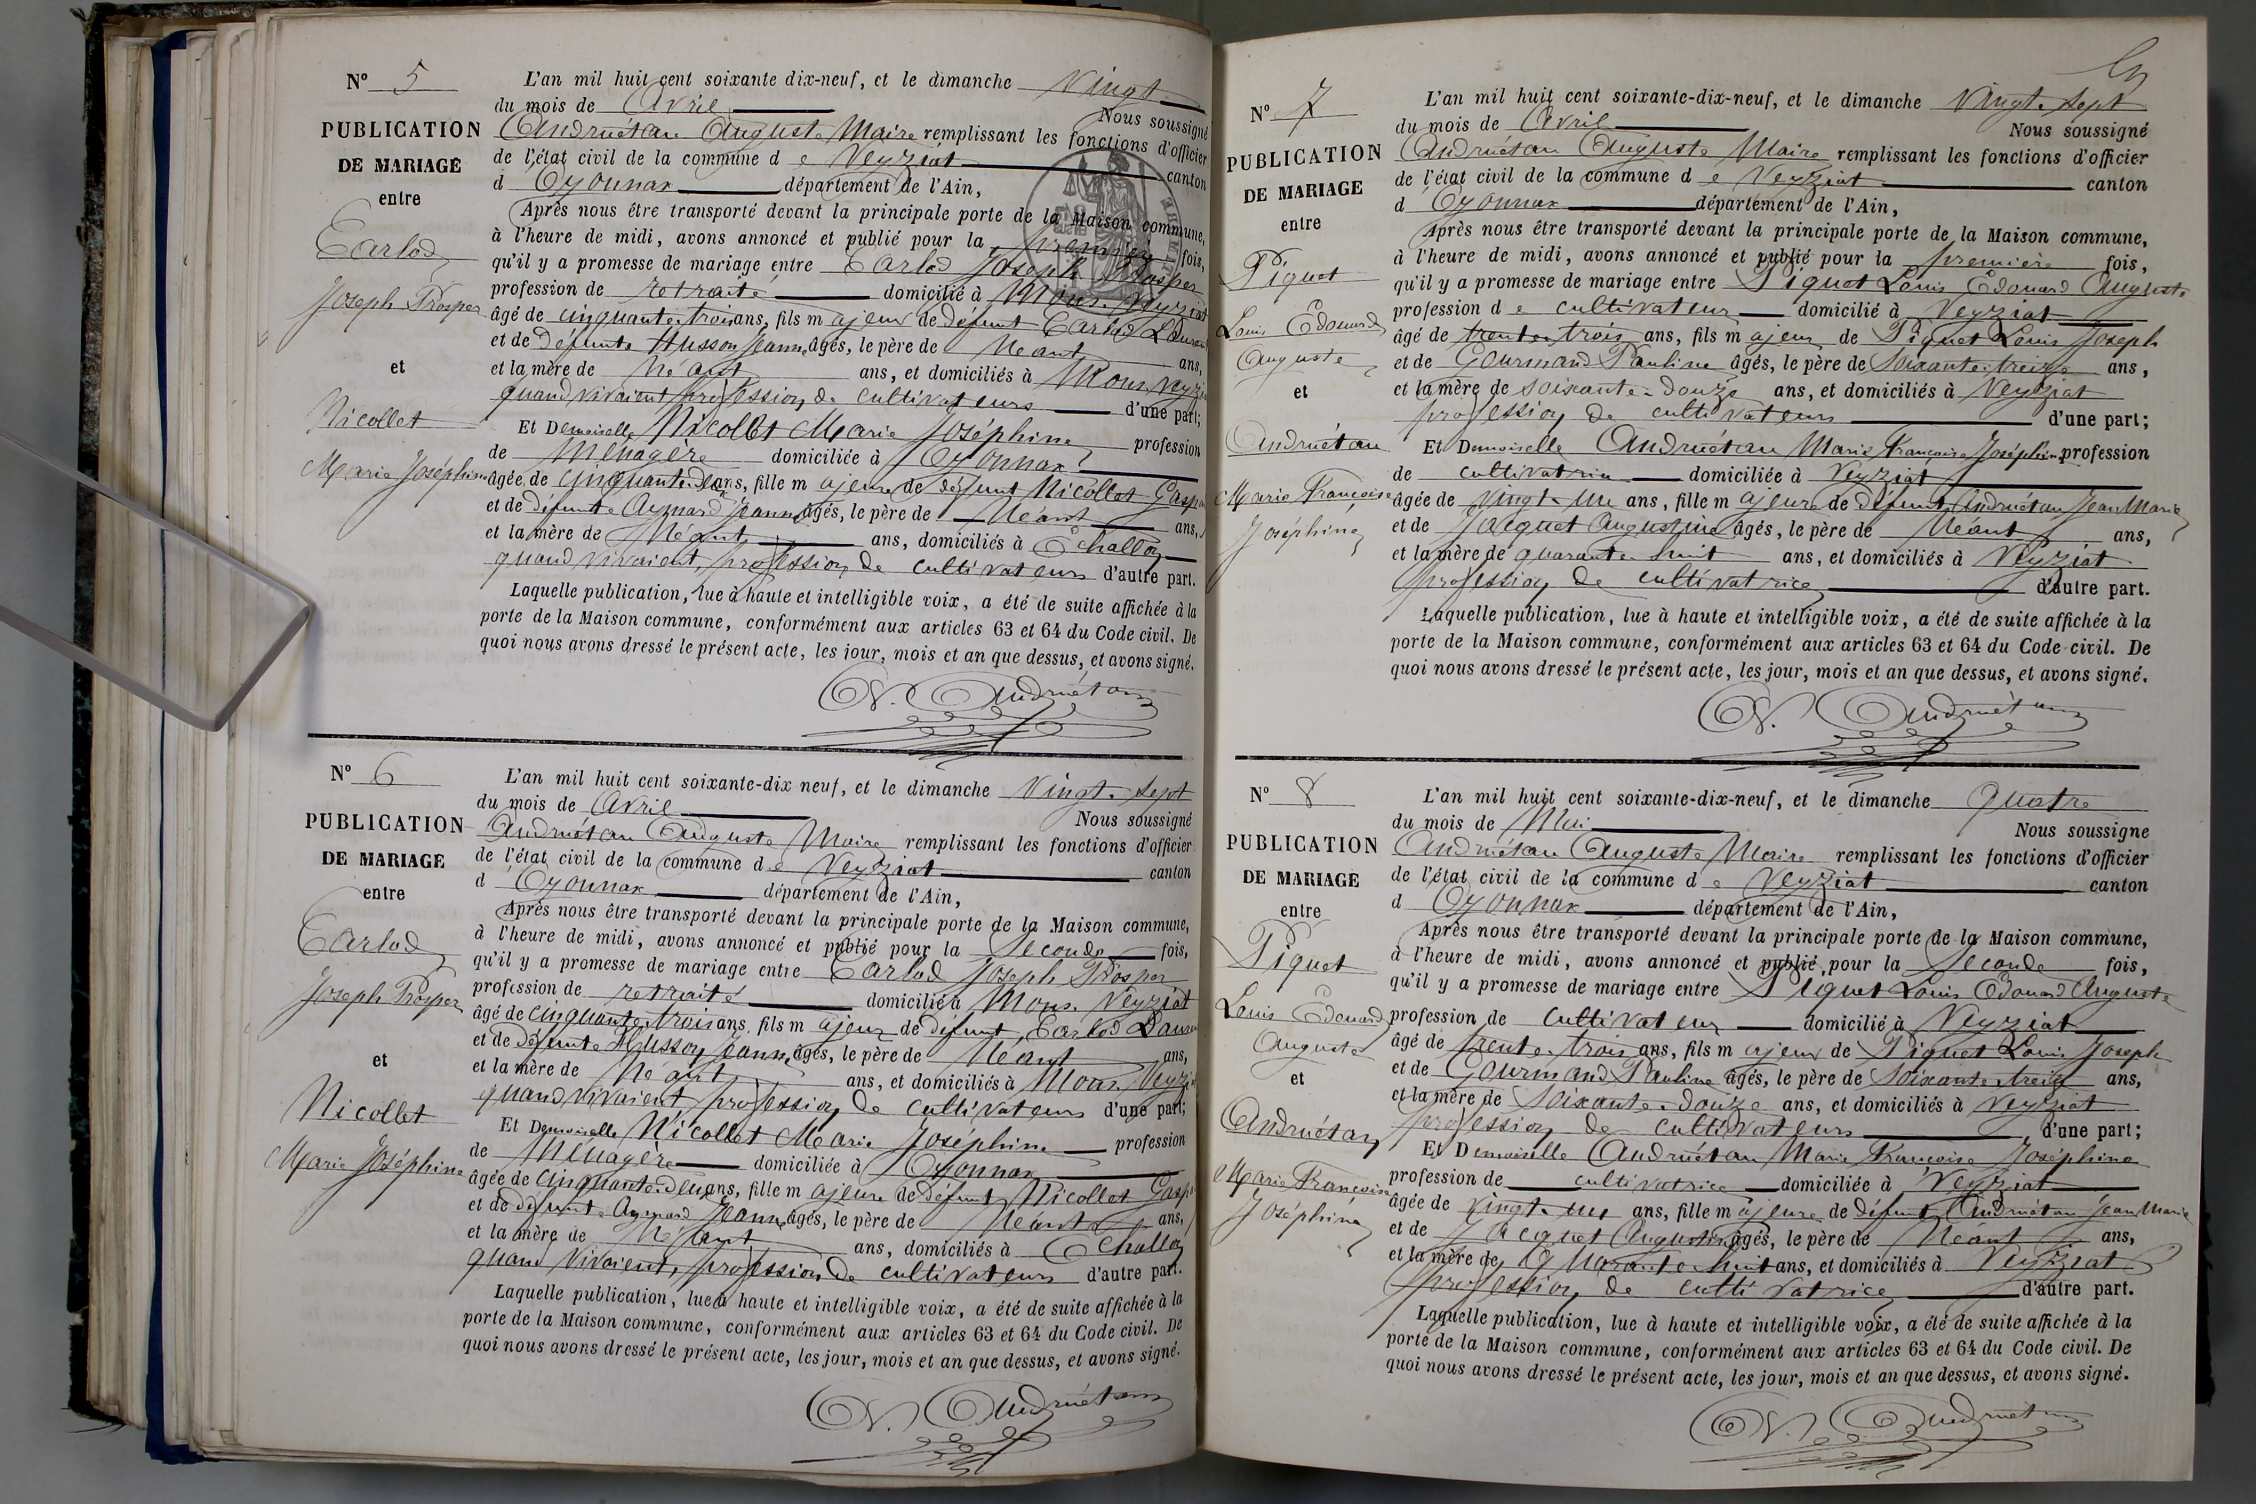 N° 5
PUBLICATION
DE MARIAGE
entre
Carlod
Joseph Prosper
et
Nicollet
Marie Joséphine
L'an mil huit cent soixante dix-neuf, et le dimanche Vingt
du mois de Avril Nous soussigné
Andruétan Auguste Maire remplissant les fonctions d'officier
de l'état civil de la commune de Veyziat canton
d Oyonnax département de l'Ain,
Après nous être transporté devant la principale porte de la Maison commune,
à l'heure de midi, avons annoncé et publié pour la première fois,
qu'il y a promesse de mariage entre Carlod Joseph Prosper
profession de retraité domicilié à Mons. Veyziat
âgé de cinquante trois ans, fils majeur de défunt Carlod Lauran
et de défunte Husson Jeanne âgés, le père de Néant ans,
et la mère de Néant ans, et domiciliés à Mons, Veyzia
quand vivaient profession de cultivateurs d'une part;
Et Demoiselle Nicollet Marie Joséphine profession
de Ménagère domiciliée à Oyonnax
âgée de cinquante-deux ans, fille majeure de défunt Nicollet Gaspa
et de défunte Aymard Jeanne âgés, le père de Néant ans,
et la mère de Néant ans, domiciliés à Echallon
quand vivaient, profession de cultivateurs d'autre part.
Laquelle publication, lue à haute et intelligible voix, a été de suite affichée à la
porte de la Maison commune, conformément aux articles 63 et 64 du Code civil. De
quoi nous avons dressé le présent acte, les jour, mois et an que dessus, et avons signé.
Andruétan
N° 6
PUBLICATION
DE MARIAGE
entre
Carlod
Joseph Prosper
et
Nicollet
Marie Joséphine
L'an mil huit cent soixante-dix neuf, et le dimanche Vingt-sept
du mois de Avril Nous soussigné
Andruétan Auguste Maire remplissant les fonctions d'officier
de l'état civil de la commune de Veyziat canton
d Oyonnax département de l'Ain,
Après nous être transporté devant la principale porte de la Maison commune,
à l'heure de midi, avons annoncé et publié pour la Seconde fois,
qu'il y a promesse de mariage entre Carlod Joseph Prosper
profession de retraité domicilié à Mons. Veyziat
âgé de cinquante-trois ans, fils majeur de défunt, Carlod Lauran
et de défunte Husson Jeanne âgés, le père de Néant ans,
et la mère de Néant ans, et domiciliés à Mons Veyzia
quand vivaient profession de cultivateurs d'une part;
Et Demoiselle Nicollet Marie Joséphine profession
de Ménagère domiciliée à Oyonnax
âgée de cinquante-deux ans, fille majeure de défunt Nicollet Gaspa
et de défunte Aymard Jeanne âgés, le père de Néant ans,
et la mère de Néant ans, domiciliés à Echallon
quand vivaient, profession de cultivateurs d'autre part.
Laquelle publication, lue à haute et intelligible voix, a été de suite affichée à la
porte de la Maison commune, conformément aux articles 63 et 64 du Code civil. De
quoi nous avons dressé le présent acte, les jour, mois et an que dessus, et avons signé.
Andruétan
N° 7
PUBLICATION
DE MARIAGE
entre
Piquet
Louis Edouard
Auguste
et
Andruétan
Marie Françoise
Joséphine
L'an mil huit cent soixante-dix-neuf, et le dimanche Vingt-sept
du mois de Avril Nous soussigné
Andruétan Auguste Maire remplissant les fonctions d'officier
de l'état civil de la commune de Veyziat canton
d Oyonnax département de l'Ain,
Après nous être transporté devant la principale porte de la Maison commune,
à l'heure de midi, avons annoncé et publié pour la première fois,
qu'il y a promesse de mariage entre Piquet Louis Edouard Auguste
profession de cultivateur domicilié à Veyziat
âgé de trente-trois ans, fils majeur de Piquet Louis Joseph
et de Gourmand Pauline âgés, le père de soixante-treize ans,
et la mère de soixante-douze ans, et domiciliés à Veyziat
profession de cultivateurs d'une part;
Et Demoiselle Andruétan Marie Françoise Joséphine profession
de cultivatrice domiciliée à Veyziat
âgée de vingt-un ans, fille majeure de défunt Andruétan Jean Marie
et de Jacquet Augustine âgés, le père de Néant ans,
et la mère de quarante-huit ans, et domiciliés à Veyziat
profession de cultivatrice d'autre part.
Laquelle publication, lue à haute et intelligible voix, a été de suite affichée à la
porte de la Maison commune, conformément aux articles 63 et 64 du Code civil. De
quoi nous avons dressé le présent acte, les jour, mois et an que dessus, et avons signé.
Andruétan
N° 8
PUBLICATION
DE MARIAGE
entre
Piquet
Louis Edouard
Auguste
et
Andruétan
Marie Françoise
Joséphine
L'an mil huit cent soixante-dix-neuf, et le dimanche quatre
du mois de Mai Nous soussigne
Andruétan Auguste Maire remplissant les fonctions d'officier
de l'état civil de la commune de Veyziat canton
d Oyonnax département de l'Ain,
Après nous être transporté devant la principale porte de la Maison commune,
à l'heure de midi, avons annoncé et publié pour la Seconde fois,
qu'il y a promesse de mariage entre Piquet Louis Edouard Auguste
profession de cultivateur domicilié à Veyziat
âgé de trente-trois ans, fils majeur de Piquet Louis Joseph
et de Gourmand Pauline âgés, le père de soixante-treize ans,
et la mère de soixante-douze ans, et domiciliés à Veyziat
profession de cultivateurs d'une part;
Et Demoiselle Andruétan Marie Françoise Joséphine
profession de cultivatrice domiciliée à Veyziat
âgée de vingt-un ans, fille majeure de défunt Andruétan Jean Marie
et de Jacquet Augustine âgés, le père de Néant ans,
et la mère de quarante-huit ans, et domiciliés à Veyziat
profession de cultivatrice d'autre part.
Laquelle publication, lue à haute et intelligible voix, a été de suite affichée à la
porte de la Maison commune, conformément aux articles 63 et 64 du Code civil. De
quoi nous avons dressé le présent acte, les jour, mois et an que dessus, et avons signé.
Andruétan